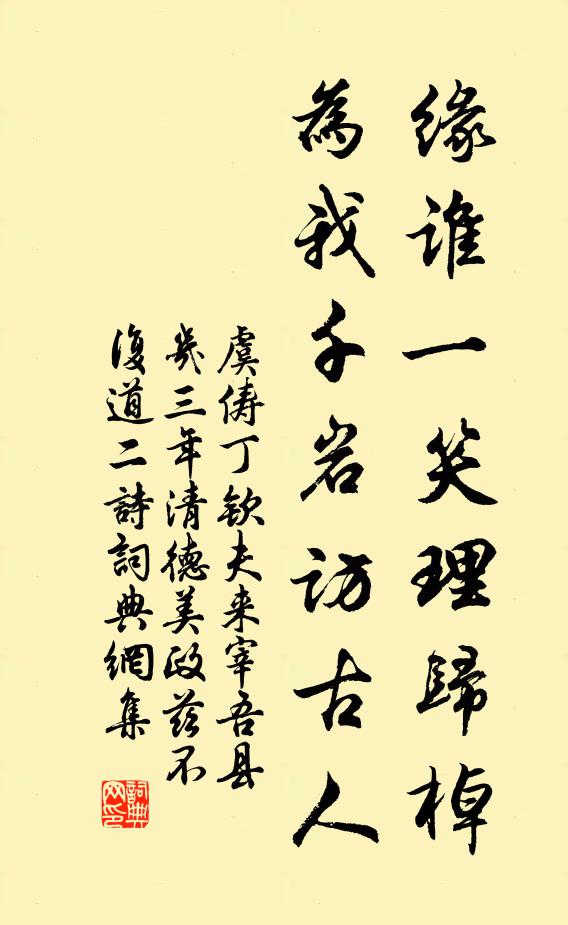 緣誰一笑理歸棹
為我千岩訪古人
虞儔丁欽夫来宰吾县
幾三年清德美政茲不
復道二詩詞典網集
詞典
网印